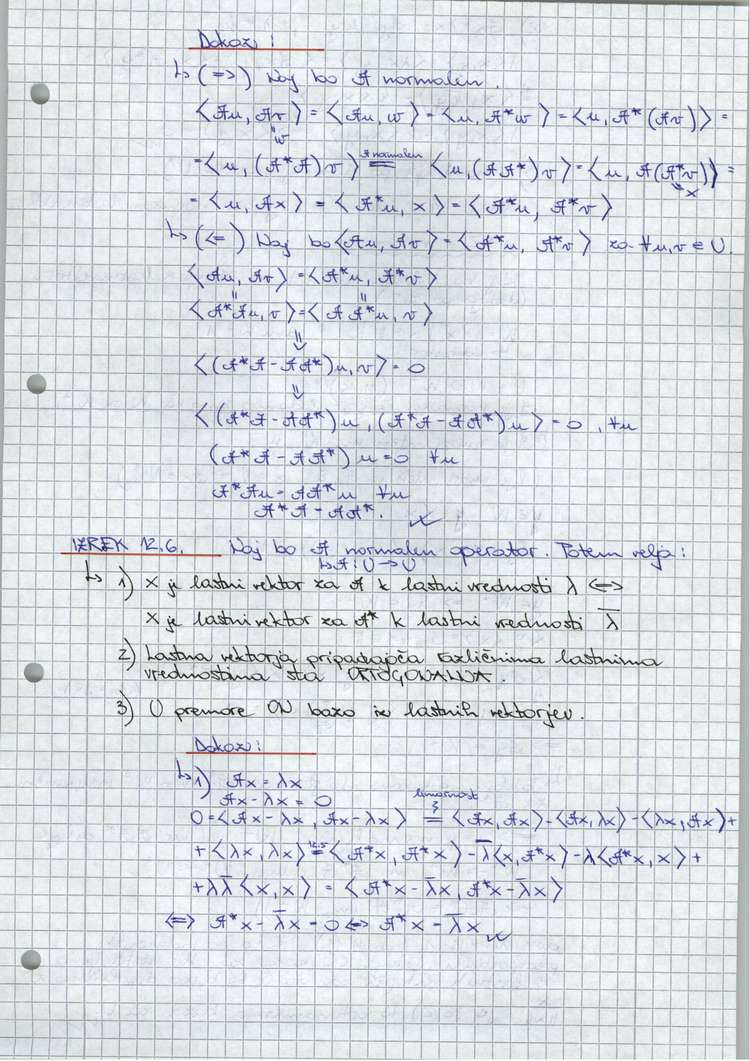 Dokaz:
↳ (=>) Naj bo A normalen.
⟨Au, Av⟩ = ⟨Au, w⟩ = ⟨u, A*w⟩ = ⟨u, A*(Av)⟩ =
"w
= ⟨u, (A*A)v⟩ A normalen = ⟨u, (AA*)v⟩ = ⟨u, A(A*v)⟩ =
"x
= ⟨u, Ax⟩ = ⟨A*u, x⟩ = ⟨A*u, A*v⟩
↳ (<=) Naj bo ⟨Au, Av⟩ = ⟨A*u, A*v⟩ za ∀u,v ∈ U.
⟨Au, Av⟩ = ⟨A*u, A*v⟩
" "
⟨A*Au, v⟩ = ⟨AA*u, v⟩
⇓
⟨(A*A - AA*)u, v⟩ = 0
⇓
⟨(A*A - AA*)u, (A*A - AA*)u⟩ = 0, ∀u
(A*A - AA*)u = 0 ∀u
A*Au = AA*u ∀u
A*A = AA*. ✓
IZREK 12.6. Naj bo A normalen operator. Potem velja:
↳ A: U → U
↳ 1) x je lastni vektor za A k lastni vrednosti λ <=>
x je lastni vektor za A* k lastni vrednosti λ̅
2) Lastna vektorja pripadajoča različnima lastnima
vrednostima sta ORTOGONALNA.
3) U premore ON bazo iz lastnih vektorjev.
Dokaz:
↳ 1) Ax = λx
Ax - λx = 0
0 = ⟨Ax - λx, Ax - λx⟩ linearnost = ⟨Ax, Ax⟩ - ⟨Ax, λx⟩ - ⟨λx, Ax⟩ +
+ ⟨λx, λx⟩ 12.5 = ⟨A*x, A*x⟩ - λ̅⟨x, A*x⟩ - λ⟨A*x, x⟩ +
+ λλ̅⟨x, x⟩ = ⟨A*x - λ̅x, A*x - λ̅x⟩
<=> A*x - λ̅x = 0 <=> A*x = λ̅x ✓